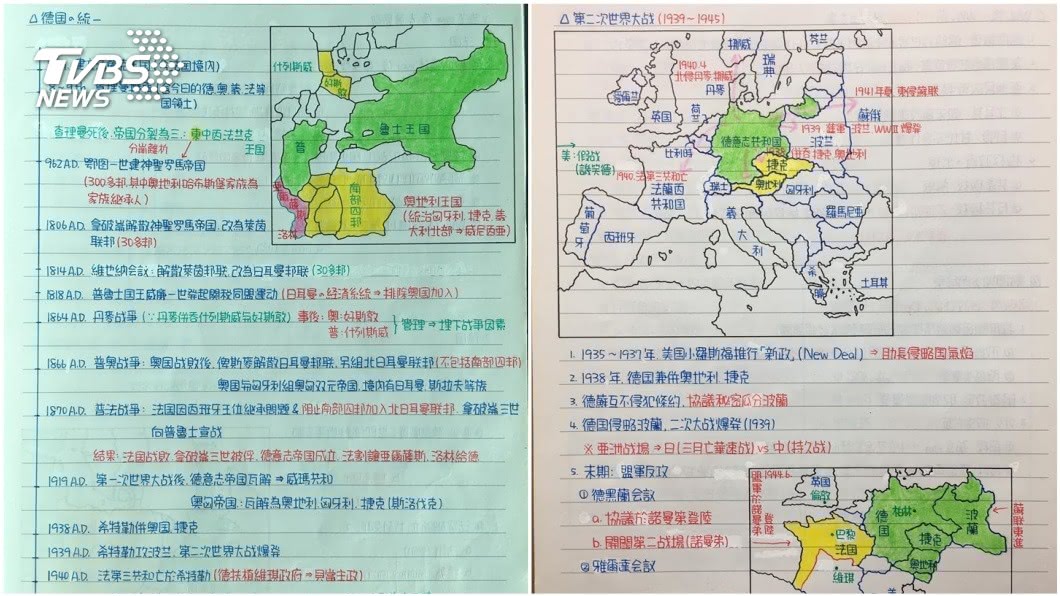 △ 德國の統一
TVBS
NEWS
国領土)
查理曼死後,帝国分裂為三:東中西法兰克
王国
962A.D. 鄂图一世建神聖罗馬帝国
(300多邦,其中奧地利哈布斯堡家成為
家族継承人)
1806A.D. 拿破崙解散神聖罗馬帝国,改為萊茵
联邦(30多邦)
1814A.D. 維也納会議:解散萊茵邦联,改為日耳曼邦联(30多邦)
1818A.D. 普魯士国王威廉一世發起關税同盟運动(日耳曼の経済系統⇒排除奧国加入)
1864A.D. 丹麥战爭(∵丹麥併吞什列斯威與好斯敦)事後:奧:好斯敦
普:什列斯威
管理⇒埋下战爭因素
1866A.D. 普奧战爭:奧国战敗後,俾斯麥解散日耳曼邦联,另組北日耳曼联邦(不包括南部四邦)
奧国與匈牙利組奧匈双元帝国,境内有日耳曼、斯拉夫等族
1870A.D. 普法战爭:法国因西班牙王位継承問題&阻止南部四邦加入北日耳曼联邦,拿破崙三世
向普魯士宣战
結果:法国战敗,拿破崙三世被俘,德意志帝国成立,法割讓亞爾薩斯、洛林給德
1919A.D. 第一次世界大战後,德意志帝国瓦解⇒威瑪共和
奧匈帝国:瓦解為奧地利,匈牙利,捷克(斯洛伐克)
1938A.D. 希特勒併奧国,捷克
1939A.D. 希特勒攻波兰,第二次世界大战爆發
1940A.D. 法第三共和亡於希特勒(德扶植維琪政府⇒貝當主政)
什列斯威
好斯敦
魯士王国
普
南部四邦
洛林
奧地利王国
(統治匈牙利,捷克,義
大利北部⇒威尼西亞)
△ 第二次世界大战(1939~1945)
挪威
瑞典
芬兰
1940.4
北侵丹麥,挪威
丹麥
愛爾兰
英国
荷兰
1941年夏,東侵蘇联
蘇俄
波兰
德意志共和国
比利時
捷克
奧地利
匈牙利
瑞士
法蘭西
共和国
羅馬尼亞
義大利
葡萄牙
西班牙
希臘
土耳其
1. 1935~1937年,美国小羅斯福推行「新政」(New Deal)⇒助長侵略国氣焰
2. 1938年,德国兼併奧地利,捷克
3. 德蘇互不侵犯條約,協議秘密瓜分波蘭
4. 德国侵略波蘭,二次大战爆發(1939)
※ 亞洲战場⇒日(三月亡華速战) vs 中(持久战)
5. 末期:盟軍反攻
① 德黑蘭会議
a. 協議於諾曼第登陸
b. 開闢第二战場(諾曼第)
② 雅爾達会議
1944.6
盟軍於諾曼第登陸
英国
倫敦
巴黎
法国
維琪
德国
柏林
波蘭
捷克
奧地利
蘇联東進